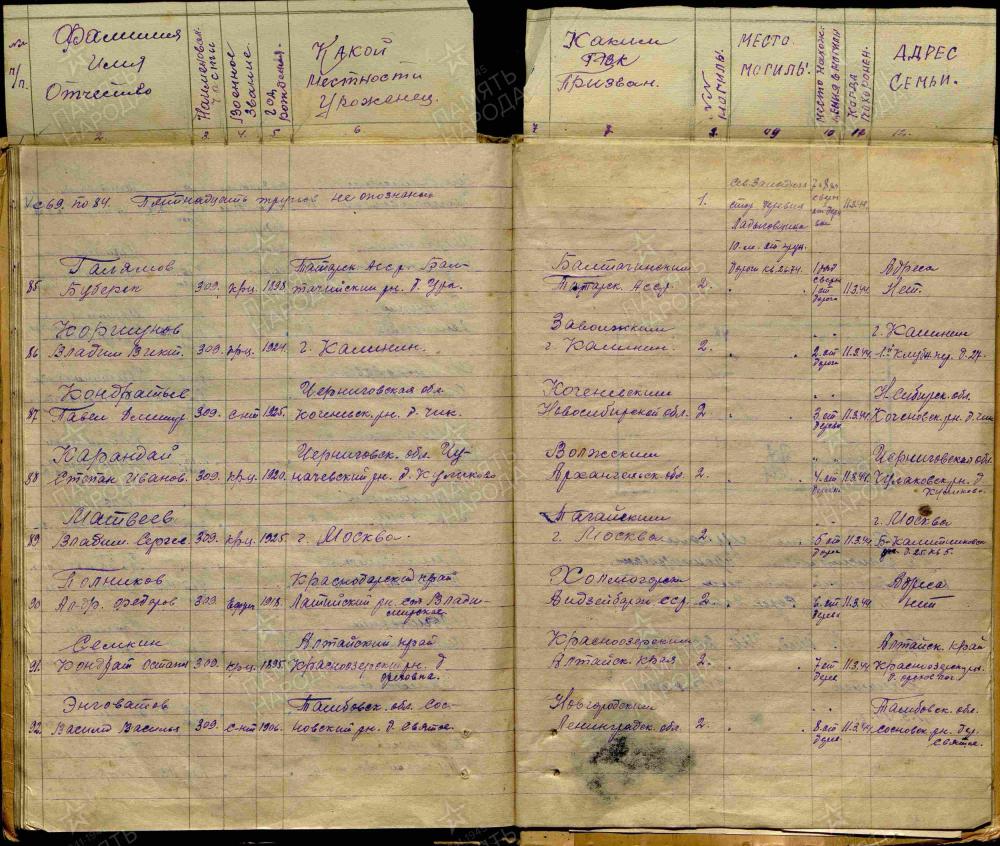 №№ п/п.
Фамилия Имя Отчество
Наименован. части
Военное Звание.
Год рождения.
Какой местности Уроженец.
Каким РВК Призван.
№№ могилы.
МЕСТО МОГИЛЫ
Место нахож. дения в могиле
Когда похоронен.
АДРЕС СЕМЬИ.
2 3. 4. 5 6
7. 8. 10 11 12.
с 69. по 84. Пятнадцать трупов не опознаны
1. сев. западн. стор. деревня 10. м. от грун. 11.3.44
Галямов Татарск. Асср. Бал- Балтачинским дороги кв. 2674. 1 ряд Адреса
85 309. кр-ц. 1898. тачийский рн. д. Ура. Татарск. Асср. 2. север 1 от дороги 11.3.44 Нет.
Коршунов Заволжским г. Калинин
86 Владим. Викт. 309. кр-ц. 1924. г. Калинин. г. Калинин. 2. 2. от дороги 11.3.44 д. 27.
Кондратьев Черниговская обл. Коченевским Н.Сибирск. обл.
87 Павел Дмитр. 309. с-нт 1925. коченевск. рн. д. Чик. Новосибирской обл. 2 3 от дороги 11.3.44 Коченовск. рн. д. Чик
Карандай Черниговск. обл. Чу- Волжским Черниговская обл.
88 Степан Иванов. 309. кр-ц. 1920. начевский рн. д. Куликово Архангельск. обл. 2. 4. от дороги 11.3.44 Чумаковск. рн. д. Куликово.
Матвеев Тагайским г. Москва
89 Владим. Сергее. 309. кр-ц. 1925 г. Москва. г. Москва 2. 5 от дороги 11.3.44 Б-Калитниковск. д. 25 кв 5.
Полников Краснодарский край Холмогорск Адреса
90 Ал-др. Федоров 309. 1918. Латийский рн. сов. Влади- мирское. Аздзейбарж сср. 2 6. от дороги 11.3.44 нет
Семкин Алтайский край Красноозерским Алтайск. край
91. Кондрат Остап 309. кр-ц. 1895. Красноозерский рн. д. ореховка. Алтайск. края 2. 7 от дороги 11.3.44 Красноозерск рн.
Энговатов Тамбовск. обл. Сос- Новгородским Тамбовск. обл.
92. Василий Василь 309. с-нт 1906. новский рн. д. Святое. Ленинградск. обл. 2 8. от дороги 11.3.44 сосновск. рн. дер. Святое.
ПАМЯТЬ НАРОДА
1941-1945